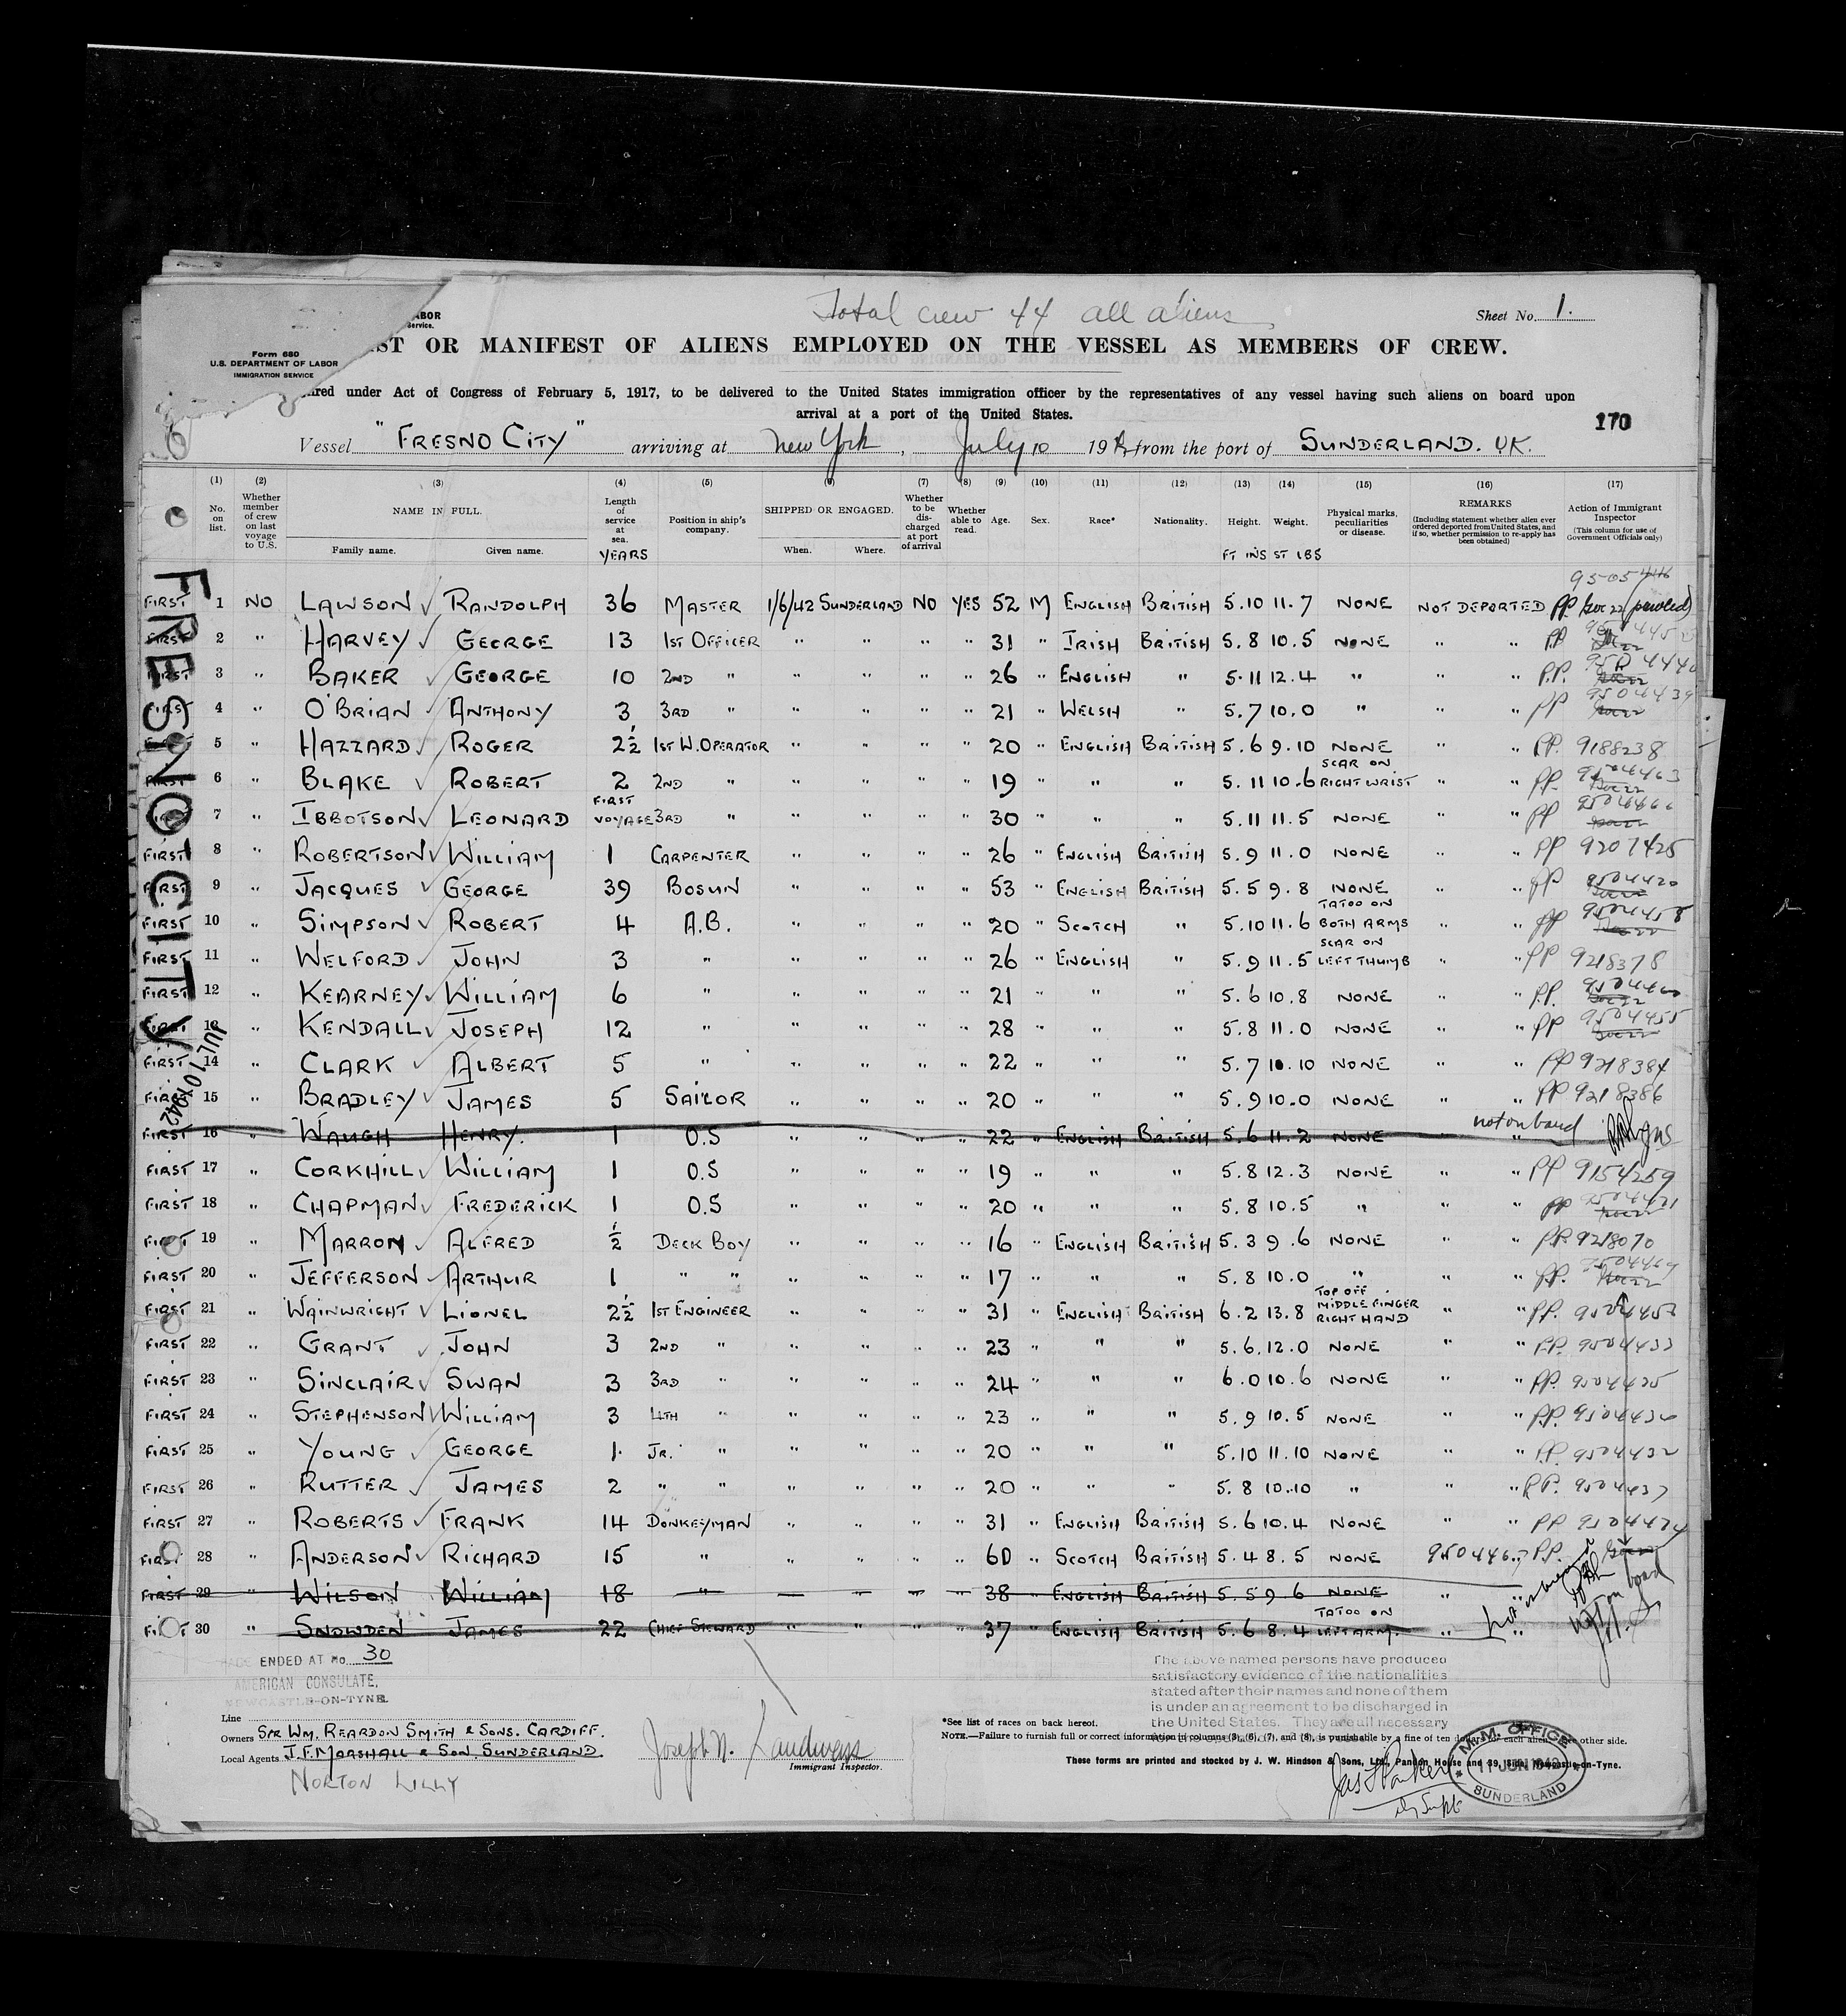 Total crew 44 all aliens
Sheet No. 1.
ABOR
Service.
Form 680
U.S. DEPARTMENT OF LABOR
IMMIGRATION SERVICE
ST OR MANIFEST OF ALIENS EMPLOYED ON THE VESSEL AS MEMBERS OF CREW.
ired under Act of Congress of February 5, 1917, to be delivered to the United States immigration officer by the representatives of any vessel having such aliens on board upon
arrival at a port of the United States.
170
Vessel "FRESNO CITY" arriving at New York, July 10 19 from the port of SUNDERLAND. UK.
(1) No. on list.
(2) Whether member of crew on last voyage to U.S.
(3) NAME IN FULL. Family name. Given name.
(4) Length of service at sea. YEARS
(5) Position in ship's company.
(6) SHIPPED OR ENGAGED. When. Where.
(7) Whether to be discharged at port of arrival
(8) Whether able to read.
(9) Age.
(10) Sex.
(11) Race*
(12) Nationality.
(13) Height. FT INS
(14) Weight. ST LBS
(15) Physical marks, peculiarities or disease.
(16) REMARKS (Including statement whether alien ever ordered deported from United States, and if so, whether permission to re-apply has been obtained)
(17) Action of Immigrant Inspector (This column for use of Government Officials only)
FRESNO CITY
JUL 10 1942
FIRST 1 NO LAWSON RANDOLPH 36 MASTER 1/6/42 SUNDERLAND NO YES 52 M ENGLISH BRITISH 5.10 11.7 NONE NOT DEPORTED PP
FIRST 2 " HARVEY GEORGE 13 1ST OFFICER " " " " 31 " IRISH BRITISH 5.8 10.5 NONE " " PP
FIRST 3 " BAKER GEORGE 10 2ND " " " " " 26 " ENGLISH " 5.11 12.4 " " " P.P. 9504440
FIRST 4 " O'BRIAN ANTHONY 3 3RD " " " " " 21 " WELSH " 5.7 10.0 " " " PP 9504439
FIRST 5 " HAZZARD ROGER 2½ 1ST W.OPERATOR " " " " 20 " ENGLISH BRITISH 5.6 9.10 NONE " " P.P. 9188238
FIRST 6 " BLAKE ROBERT 2 2ND " " " " " 19 " " " 5.11 10.6 SCAR ON RIGHT WRIST " " PP. 9504463
FIRST 7 " IBBOTSON LEONARD FIRST VOYAGE 3RD " " " " " 30 " " " 5.11 11.5 NONE " " PP 9504466
FIRST 8 " ROBERTSON WILLIAM 1 CARPENTER " " " " 26 " ENGLISH BRITISH 5.9 11.0 NONE " " PP 9207425
FIRST 9 " JACQUES GEORGE 39 BOSUN " " " " 53 " ENGLISH BRITISH 5.5 9.8 NONE " " PP 9504420
FIRST 10 " SIMPSON ROBERT 4 A.B. " " " " 20 " SCOTCH " 5.10 11.6 TATOO ON BOTH ARMS " " PP 9504458
FIRST 11 " WELFORD JOHN 3 " " " " " 26 " ENGLISH " 5.9 11.5 SCAR ON LEFT THUMB " " PP 9218378
FIRST 12 " KEARNEY WILLIAM 6 " " " " " 21 " " " 5.6 10.8 NONE " " P.P. 9504460
FIRST 13 " KENDALL JOSEPH 12 " " " " " 28 " " " 5.8 11.0 NONE " " PP 9504455
FIRST 14 " CLARK ALBERT 5 " " " " " 22 " " " 5.7 10.10 NONE " " PP 9218384
FIRST 15 " BRADLEY JAMES 5 SAILOR " " " " 20 " " " 5.9 10.0 NONE " " PP 9218386
FIRST 16 " WAUGH HENRY. 1 O.S " " " " 22 " ENGLISH BRITISH 5.6 11.2 NONE " " not on board
FIRST 17 " CORKHILL WILLIAM 1 O.S " " " " 19 " " " 5.8 12.3 NONE " " PP 9154259
FIRST 18 " CHAPMAN FREDERICK 1 O.S " " " " 20 " " " 5.8 10.5 " " " PP 9504421
FIRST 19 " MARRON ALFRED ½ DECK BOY " " " " 16 " ENGLISH BRITISH 5.3 9.6 NONE " " P.P. 9218070
FIRST 20 " JEFFERSON ARTHUR 1 " " " " " " 17 " " " 5.8 10.0 " " " P.P.
FIRST 21 " WAINWRIGHT LIONEL 2½ 1ST ENGINEER " " " " 31 " ENGLISH BRITISH 6.2 13.8 TOP OFF MIDDLE FINGER RIGHT HAND " " P.P.
FIRST 22 " GRANT JOHN 3 2ND " " " " " 23 " " " 5.6 12.0 NONE " " P.P. 9504433
FIRST 23 " SINCLAIR SWAN 3 3RD " " " " " 24 " " " 6.0 10.6 NONE " " P.P. 9504425
FIRST 24 " STEPHENSON WILLIAM 3 4TH " " " " " 23 " " " 5.9 10.5 NONE " " P.P.
FIRST 25 " YOUNG GEORGE 1. JR. " " " " " 20 " " " 5.10 11.10 NONE " " P.P. 9504432
FIRST 26 " RUTTER JAMES 2 " " " " " " 20 " " " 5.8 10.10 " " " P.P. 9504437
FIRST 27 " ROBERTS FRANK 14 DONKEYMAN " " " " 31 " ENGLISH BRITISH 5.6 10.4 NONE " " PP 9504424
FIRST 28 " ANDERSON RICHARD 15 " " " " " 60 " SCOTCH BRITISH 5.4 8.5 NONE 9504467 P.P.
FIRST 29 " WILSON WILLIAM 18 " 38 ENGLISH BRITISH 5.5 9.6 NONE " " Not on board
FIRST 30 " SNOWDEN JAMES 22 CHIEF STEWARD " " " " 37 " ENGLISH BRITISH 5.6 8.4 TATOO ON LEFT ARM. " " Not on board
ENDED AT No. 30
AMERICAN CONSULATE,
NEWCASTLE-ON-TYNE.
The above named persons have produced
satisfactory evidence of the nationalities
stated after their names and none of them
is under an agreement to be discharged in
the United States. They are all necessary
Line
Owners SIR WM. REARDON SMITH & SONS. CARDIFF.
Local Agents J.F. MARSHALL & SON, SUNDERLAND.
NORTON LILLY
Joseph N.
Immigrant Inspector.
*See list of races on back hereof.
NOTE.—Failure to furnish full or correct information in columns (3), (6), (7), and (8), is punishable by a fine of ten dollars for each alien. See other side.
These forms are printed and stocked by J. W. Hindson & Sons, Ltd., Pandon House and 39, Side, Newcastle-on-Tyne.
M.M. OFFICE
11 JUN 1942
SUNDERLAND